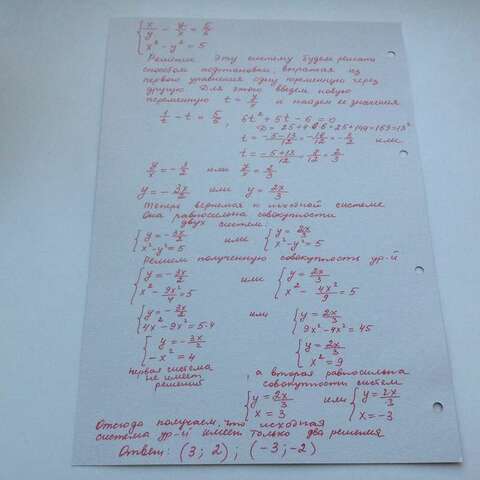 { x/y - y/x = 5/6
x² - y² = 5
Решение Эту систему будем решать
способом подстановки, выражая из
первого уравнения одну переменную через
другую. Для этого введем новую
переменную t = y/x и найдем ее значения
1/t - t = 5/6, 6t² + 5t - 6 = 0
D = 25+4·6·6=25+144=169=13²
t = (-5-13)/12 = -18/12 = -3/2 или
t = (-5+13)/12 = 8/12 = 2/3
y/x = -3/2 или y/x = 2/3
y = -3x/2 или y = 2x/3
Теперь вернемся к исходной системе
Она равносильна совокупности
двух систем
{ y = -3x/2 или { y = 2x/3
x²-y²=5 x²-y²=5
Решаем полученную совокупность ур-й
{ y = -3x/2 или { y = 2x/3
x² - 9x²/4 = 5 x² - 4x²/9 = 5
{ y = -3x/2 или { y = 2x/3
4x² - 9x² = 5·4 9x² - 4x² = 45
{ y = -3x/2 { y = 2x/3
-x² = 4 x² = 9
первая система , а вторая равносильна
не имеет совокупности систем
решений
{ y = 2x/3 или { y = 2x/3
x = 3 x = -3
Отсюда получаем, что исходная
система ур-й имеет только два решения
Ответ: (3; 2); (-3; -2)